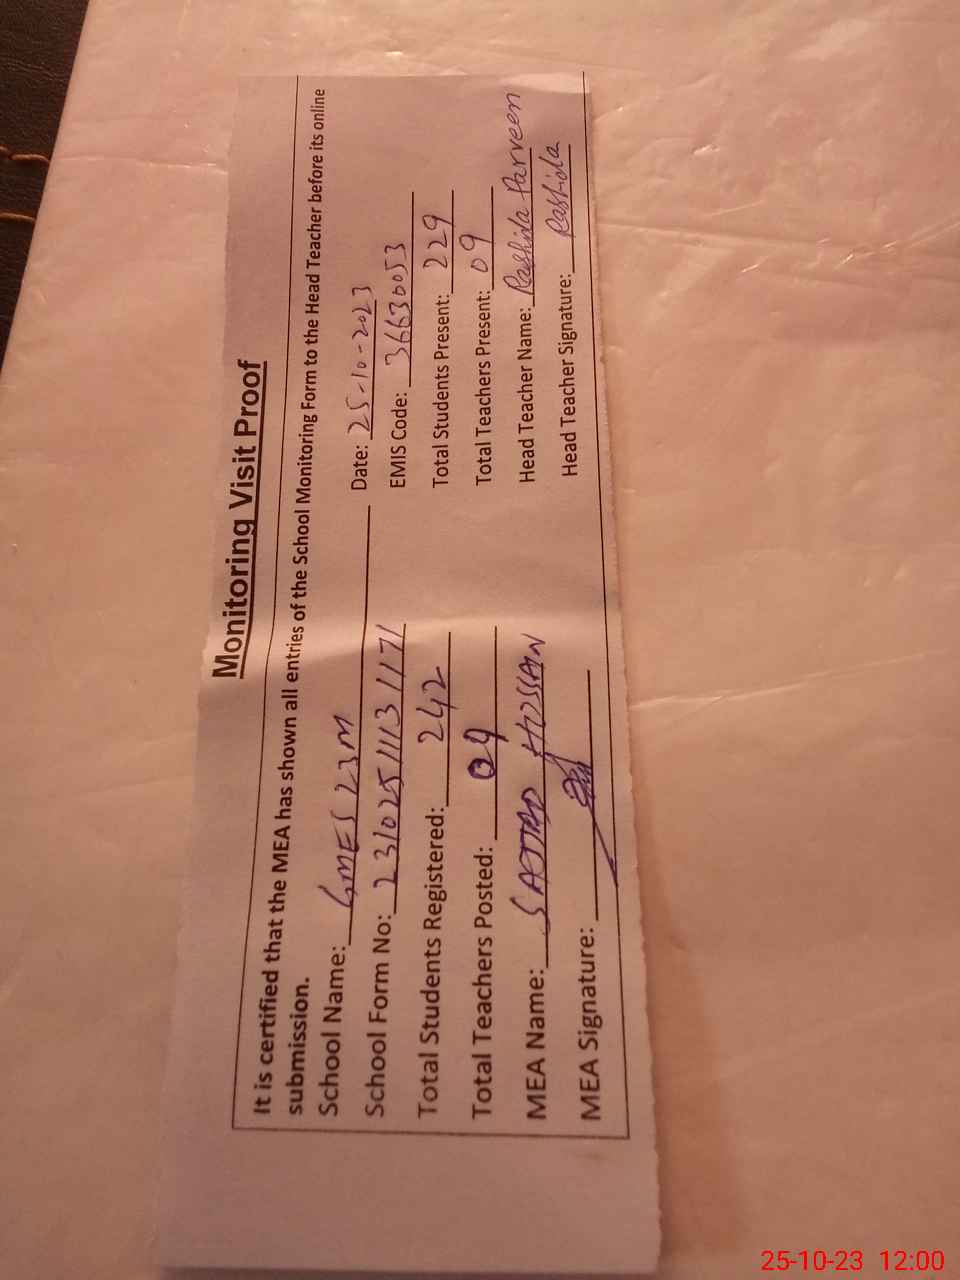 Monitoring Visit Proof
It is certified that the MEA has shown all entries of the School Monitoring Form to the Head Teacher before its online
submission.
School Name: GMES 23M Date: 25-10-2023
School Form No: 23102511131171 EMIS Code: 36630053
Total Students Registered: 242 Total Students Present: 229
Total Teachers Posted: 09 Total Teachers Present: 09
MEA Name: SAJJAD HUSSAIN Head Teacher Name: Rashida Parveen
MEA Signature: Head Teacher Signature: Rashida
25-10-23 12:00